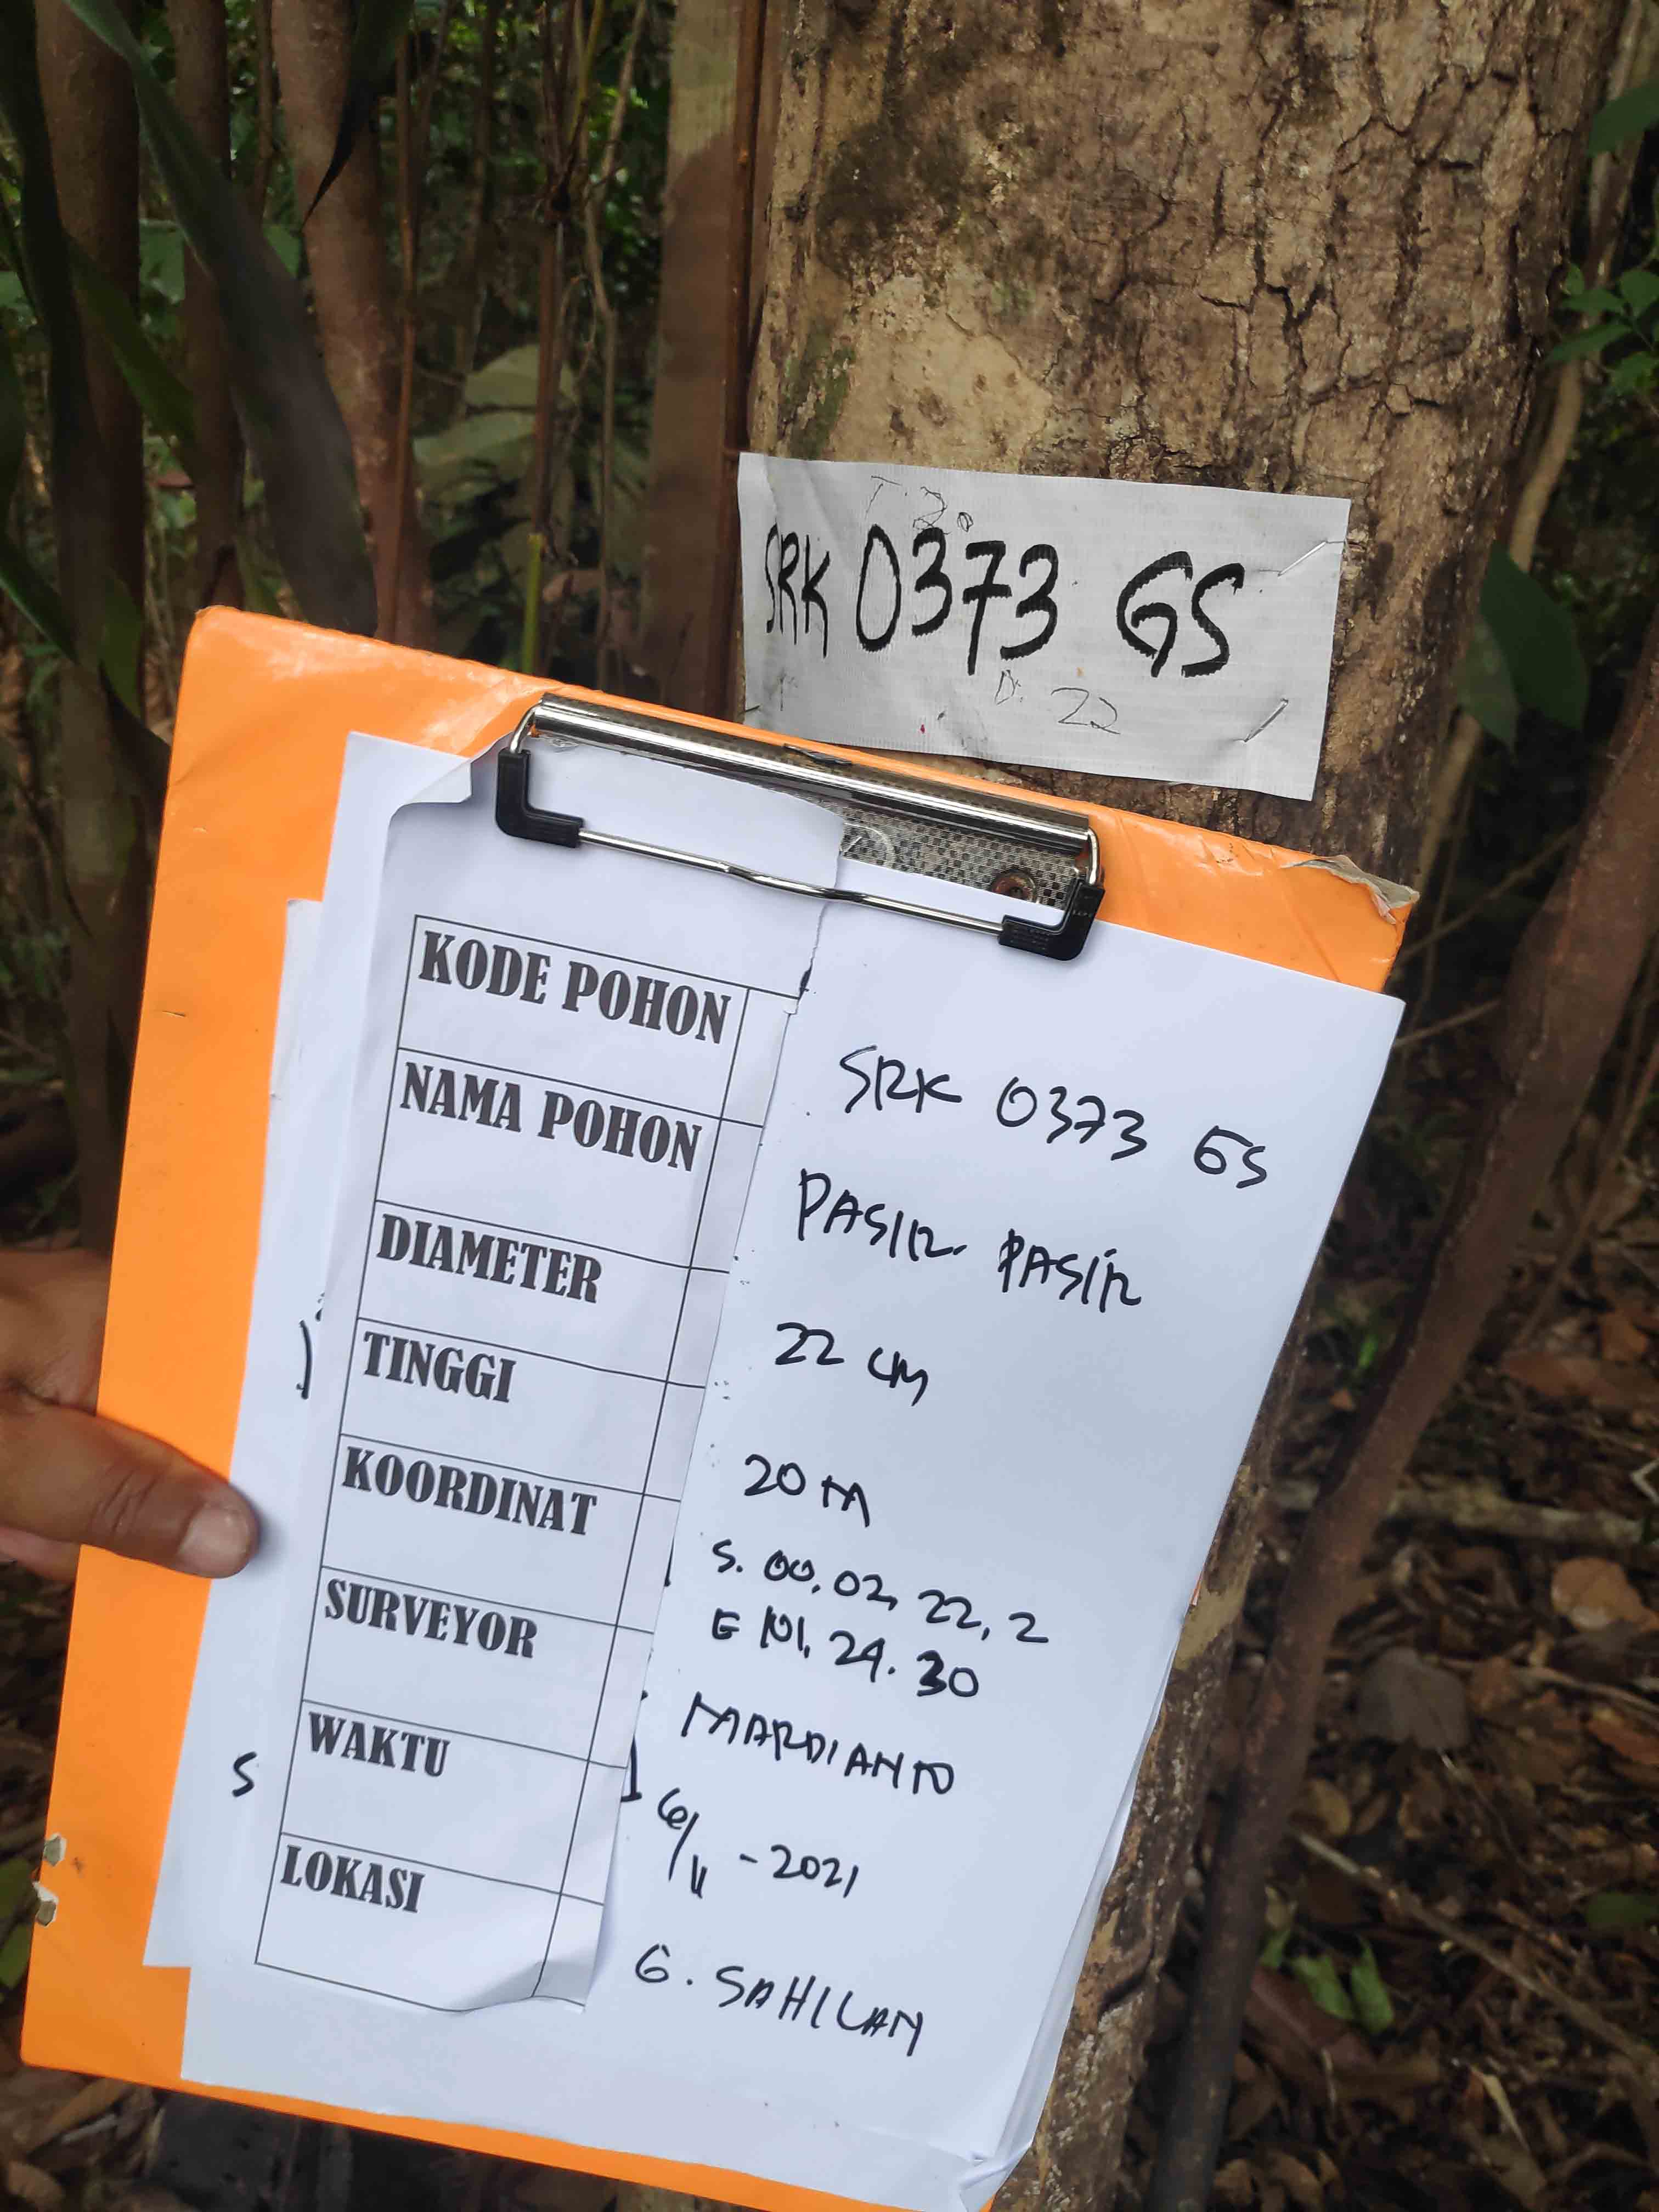 T. 20
SRK 0373 GS
D. 22
KODE POHON SRK 0373 GS
NAMA POHON PASIR-PASIR
DIAMETER 22 CM
TINGGI 20 M
KOORDINAT S. 00. 02, 22, 2
E 101. 24. 30
SURVEYOR MARDIANTO
WAKTU 6/11 - 2021
LOKASI G. SAHILAN
S